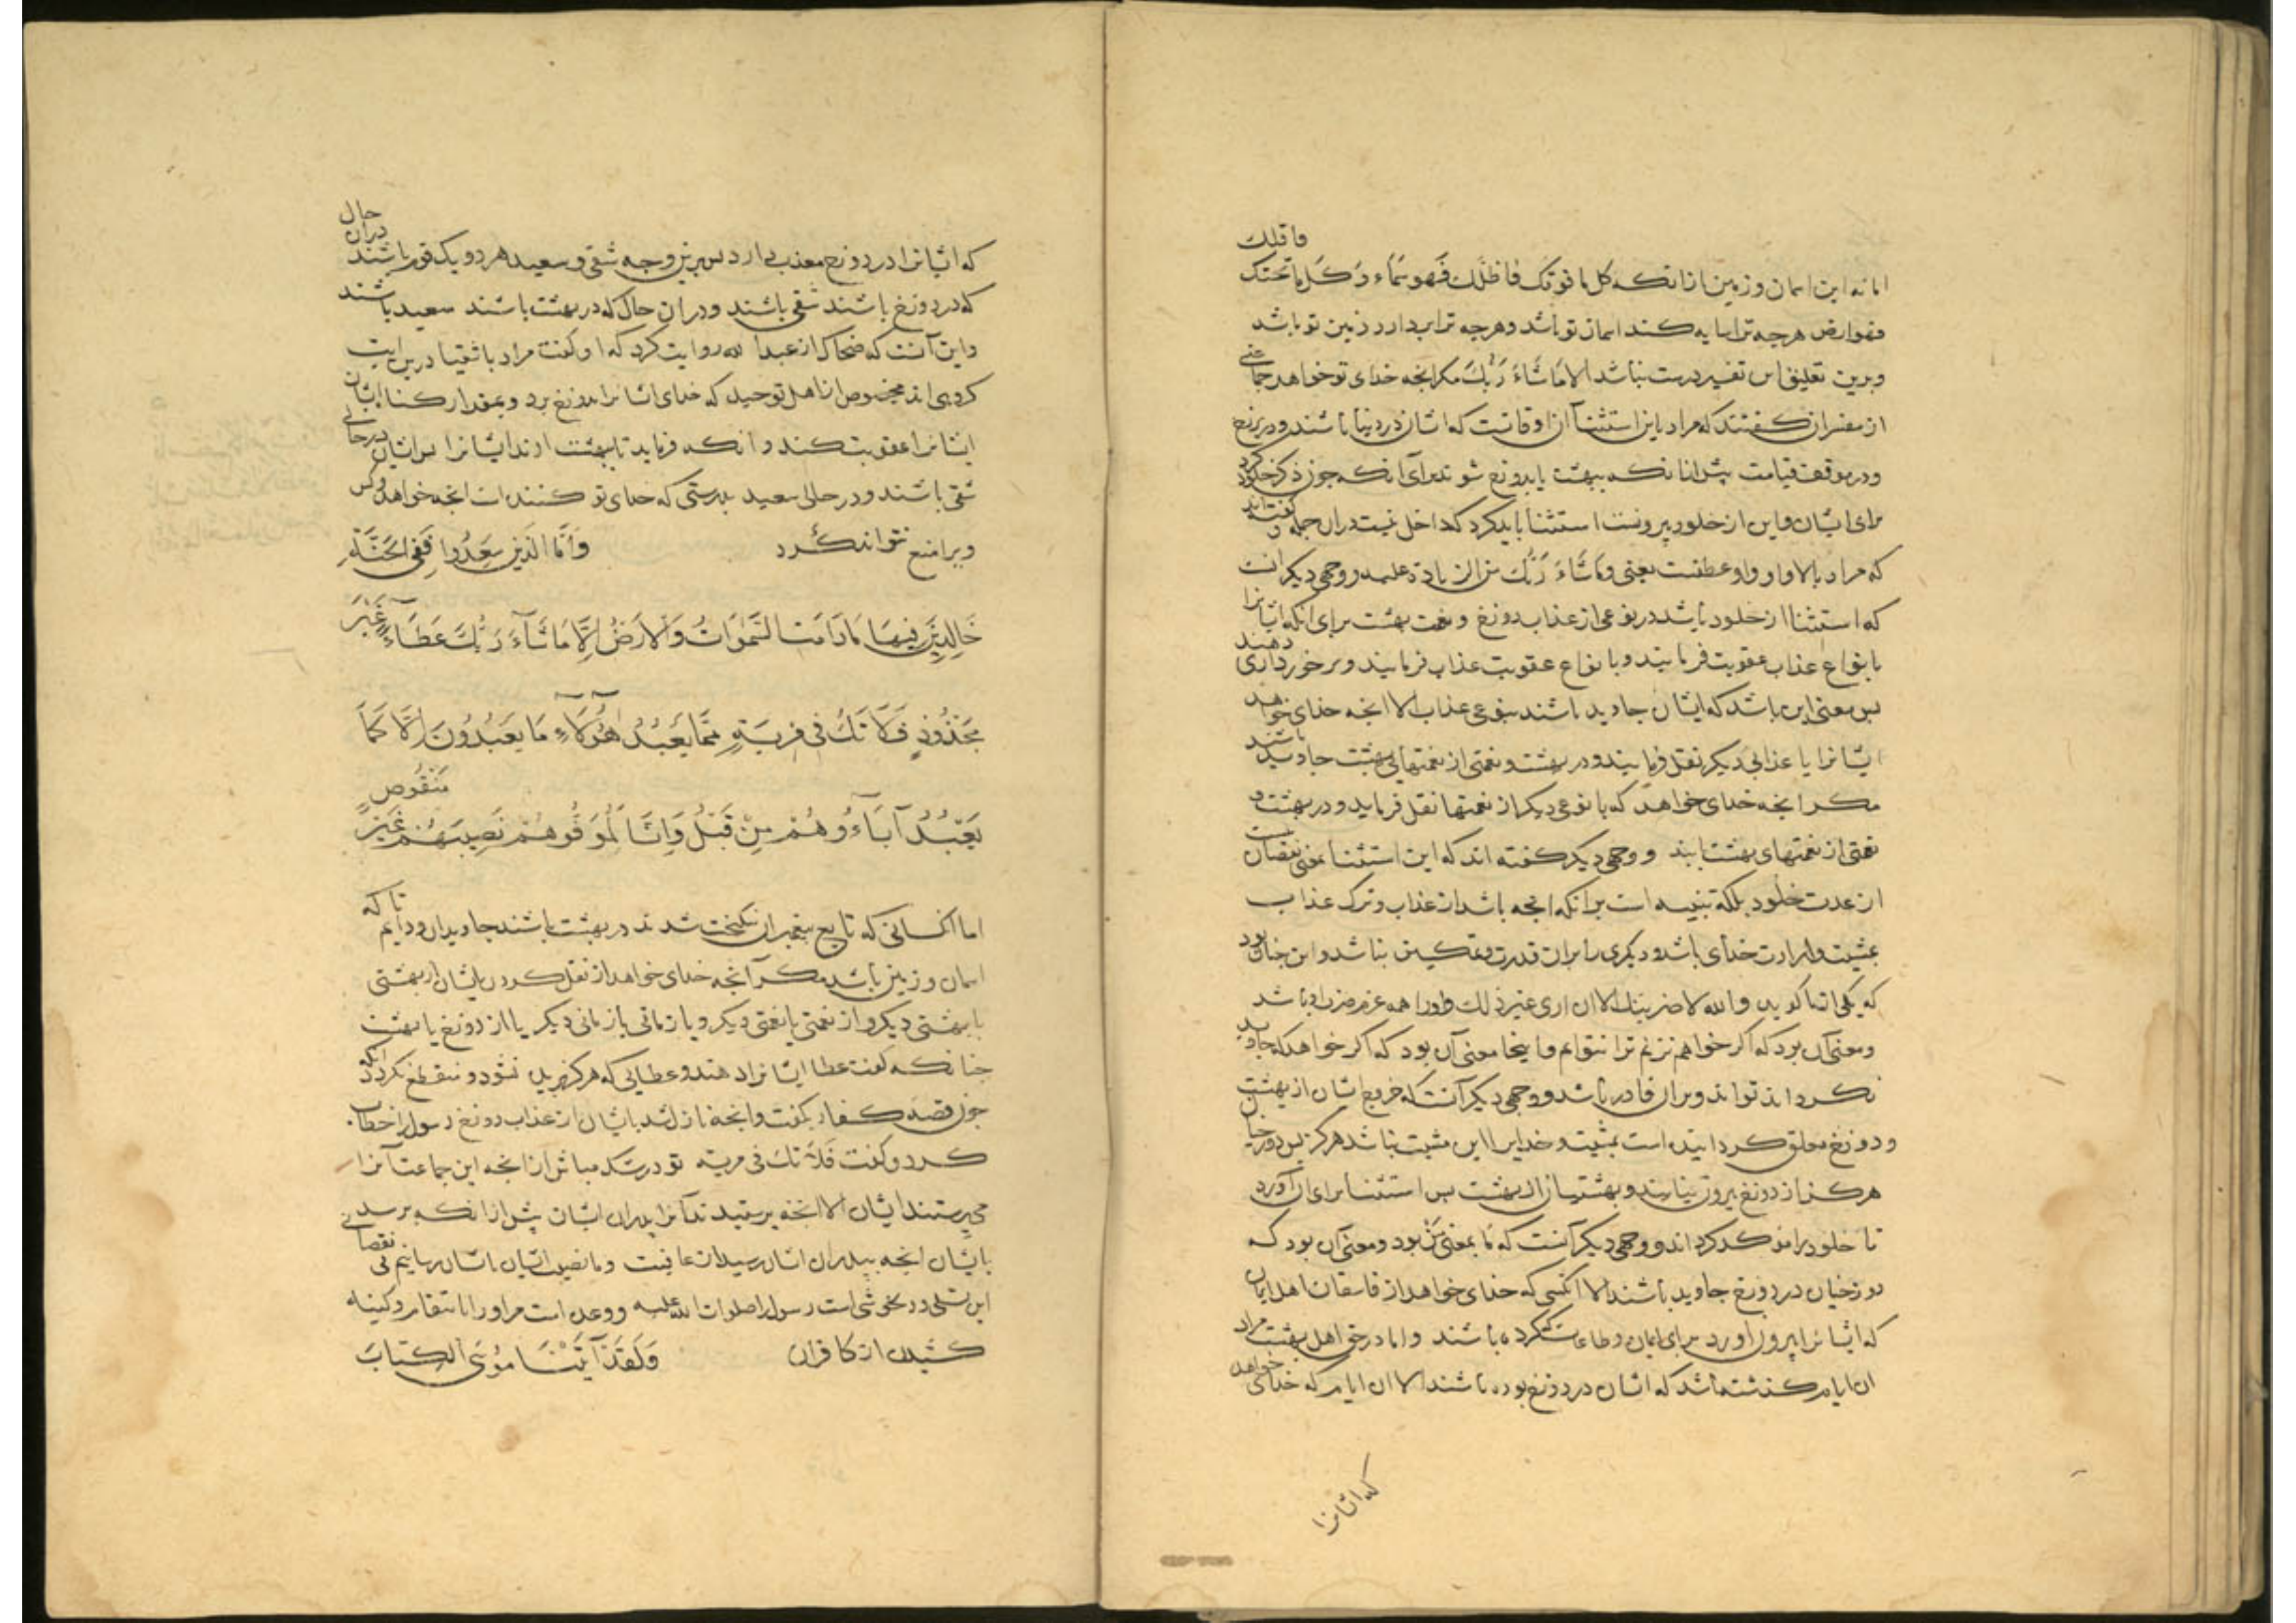 اما نه این اسمان و زمین ازانکه کل ما فوقک فاظلک فهو سماء و کل ما تحتک فاقلک
فهو ارض هرچه ترا سایه کند اسمان تو باشد و هرچه ترا بردارد زمین تو باشد
و برین تعلیق این تفسیر درست نباشد الا مَا شَاءَ رَبُّكَ مکر انجه خدای تو خواهد جماعتی
از مفسران کفتند که مراد باین استثنا آن اوقاتست که ایشان در دنیا باشند و در برزخ
و در موقف قیامت پیش ازانکه ببهشت یا بدوزخ شوند برای آنکه جون ذکر خلود کرد
برای ایشان و این از خلود بیرونست استثنا باید کرد که داخل نیست دران جمله و کفته‌اند
که مراد بالا واو عطفست یعنی و ما شاء ربک من الزیادة علیه و وجهی دیکر انست
که استثنا از خلود باشد در نوعی از عذاب دوزخ و نعمت بهشت برای انکه ایشانرا
بانواع عذاب عقوبت فرمایند و بانواع عقوبت عذاب فرمایند و برخورداری دهند
بس معنی این باشد که ایشان جاوید باشند بنوعی عذاب الا انجه خدای خواهد
ایشانرا با عذابی دیکر نقل فرمایند و در بهشت و نعمتی از نعمتهای بهشت جاوید باشند
مکر انجه خدای خواهد که با نوعی دیکر از نعمتها نقل فرماید و در بهشت و
نعمتی از نعمتهای بهشت و وجهی دیکر کفته اند که این استثنا بمعنی نقصان نیست
از مدت خلود بلکه تنبیه است برانکه انجه باشد از عذاب و ترک عذاب
بمشیت و ارادت خدای باشد و دیکری را بران قدرت و تمکین نباشد و این جنان بود
که یکی از ما کوید والله لاضربنک الا ان اری غیر ذلک و او را همه عزم ضرب او باشد
و معنی آن بود که اکر خواهم نزنم ترا بتوانم و اینجا معنی آن بود که اکر خواهد که جاوید
نکرداند تواند و بران قادر باشد و وجهی دیکر آنست که خروج ایشان از بهشت
و دوزخ معلق کردانیده است بمشیت و خدایرا این مشیت نباشد هرکز بس دوزخیان
هرکز از دوزخ بیرون نیایند و بهشتیان از بهشت بس استثنا برای ان آورد
تا خلود را موکد کرداند و وجهی دیکر آنست که مَا بمعنی مَنْ بود و معنی آن بود که
دوزخیان در دوزخ جاوید باشند الا آنکسی که خدای خواهد از فاسقان اهل ایمان
که ایشانرا بیرون اورد برای ایمان و طاعات که کرده باشند و اما در حق اهل بهشت مراد
ان ایام کذشته باشد که ایشان در دوزخ بوده باشند الا ان ایام که خدای خواهد
که ایشانرا
که ایشانرا در دوزخ معذب دارد بس برین وجه شقی و سعید هر دو یک قوم باشند دران حال
که در دوزخ باشند شقی باشند و دران حال که در بهشت باشند سعید باشند
و این آنست که ضحاک از عبد الله روایت کرد که او کفت مراد باشقیا درین ایت
کروهی اند مخصوص از اهل توحید که خدای ایشانرا بدوزخ برد و بمقدار کناه ایشان
ایشانرا عقوبت کند و آنکه فرماید تا ببهشت ارند ایشانرا بس ایشان در حالی
شقی باشند و در حالی سعید بدرستی که خدای تو کننده است انجه خواهد و کس
ویرا منع نتواند کرد وَاَمَّا الَّذِينَ سُعِدُوا فَفِي الْجَنَّةِ
خَالِدِينَ فِيهَا مَا دَامَتِ السَّمٰوَاتُ وَالْاَرْضُ اِلَّا مَا شَآءَ رَبُّكَ عَطَآءً غَيْرَ
مَجْذُوذٍ فَلَا تَكُ فِي مِرْيَةٍ مِمَّا يَعْبُدُ هٰٓؤُلَآءِ مَا يَعْبُدُونَ اِلَّا كَمَا
يَعْبُدُ آبَآءُهُمْ مِنْ قَبْلُ وَاِنَّا لَمُوَفُّوهُمْ نَصِيبَهُمْ غَيْرَ مَنْقُوصٍ
اما آنکسانی که تابع پیغمبران نیکبخت شدند در بهشت باشند جاویدان و دایم تا که
اسمان و زمین باشد مکر آنجه خدای خواهد از نقل کردن ایشان از بهشتی
با بهشتی دیکر و از نعمتی با نعمتی دیکر و با زمانی از زمانی دیکر یا از دوزخ با بهشت
جنانکه کفت عطا ایشانرا دهند و عطایی که هرکز بریده نشود و منقطع نکردد انکه
جون قصه کفار بکفت و انجه نازل شد بایشان از عذاب دوزخ رسول را خطاب
کرد و کفت فَلَا تَكُ فی مریة تو در شک مباش ازانجه این جماعت آنرا
می‌پرستند ایشان الا انجه پرستیدند آنرا پدران ایشان پیش ازانکه برسد
بایشان انجه بپدران ایشان رسید از عاقبت و ما نصیب ایشان بایشان رسانیم بی نقصانی
این تسلی و دلخوشی است رسول را صلوات الله علیه و وعده است مر او را بانتقام و کینه
کشیدن از کافران وَلَقَدْ آتَيْنَا مُوسَى الْكِتَابَ